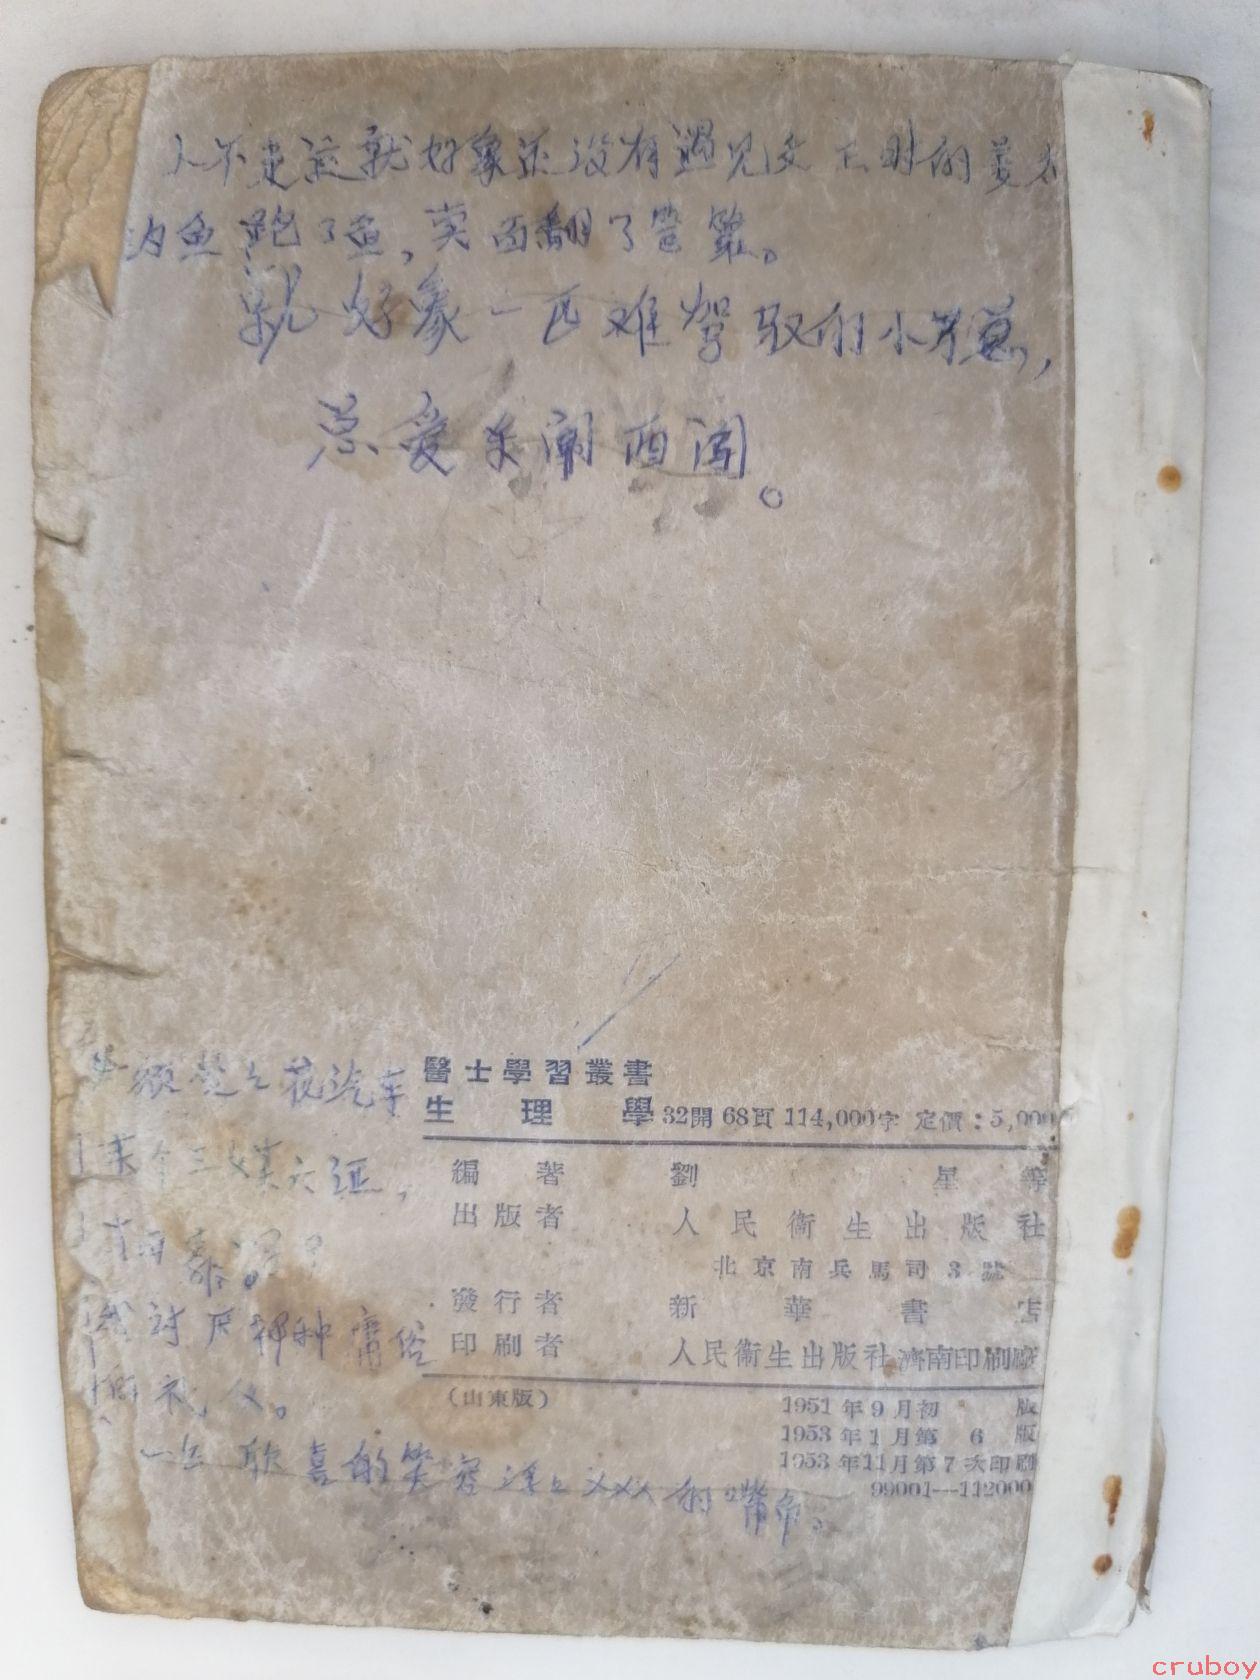 人不走运就好象还没有遇见文王时的姜太
钓鱼跑了鱼，卖面翻了笸箩。
就好象一匹难驾驭的小芳葱，
总爱东闹西闯。
花汽车
醫士學習叢書
生理學 32開 68頁 114,000字 定價：5,000
編著 劉星等
出版者 人民衛生出版社
北京南兵馬司3號
發行者 新華書店
印刷者 人民衛生出版社濟南印刷廠
(山東版) 1951年9月初版
1953年1月第6版
1953年11月第7次印刷
99001—112000
讨厌那种庸俗
礼人。
一丝欣喜的笑容浮上义XX的嘴角。
cruboy